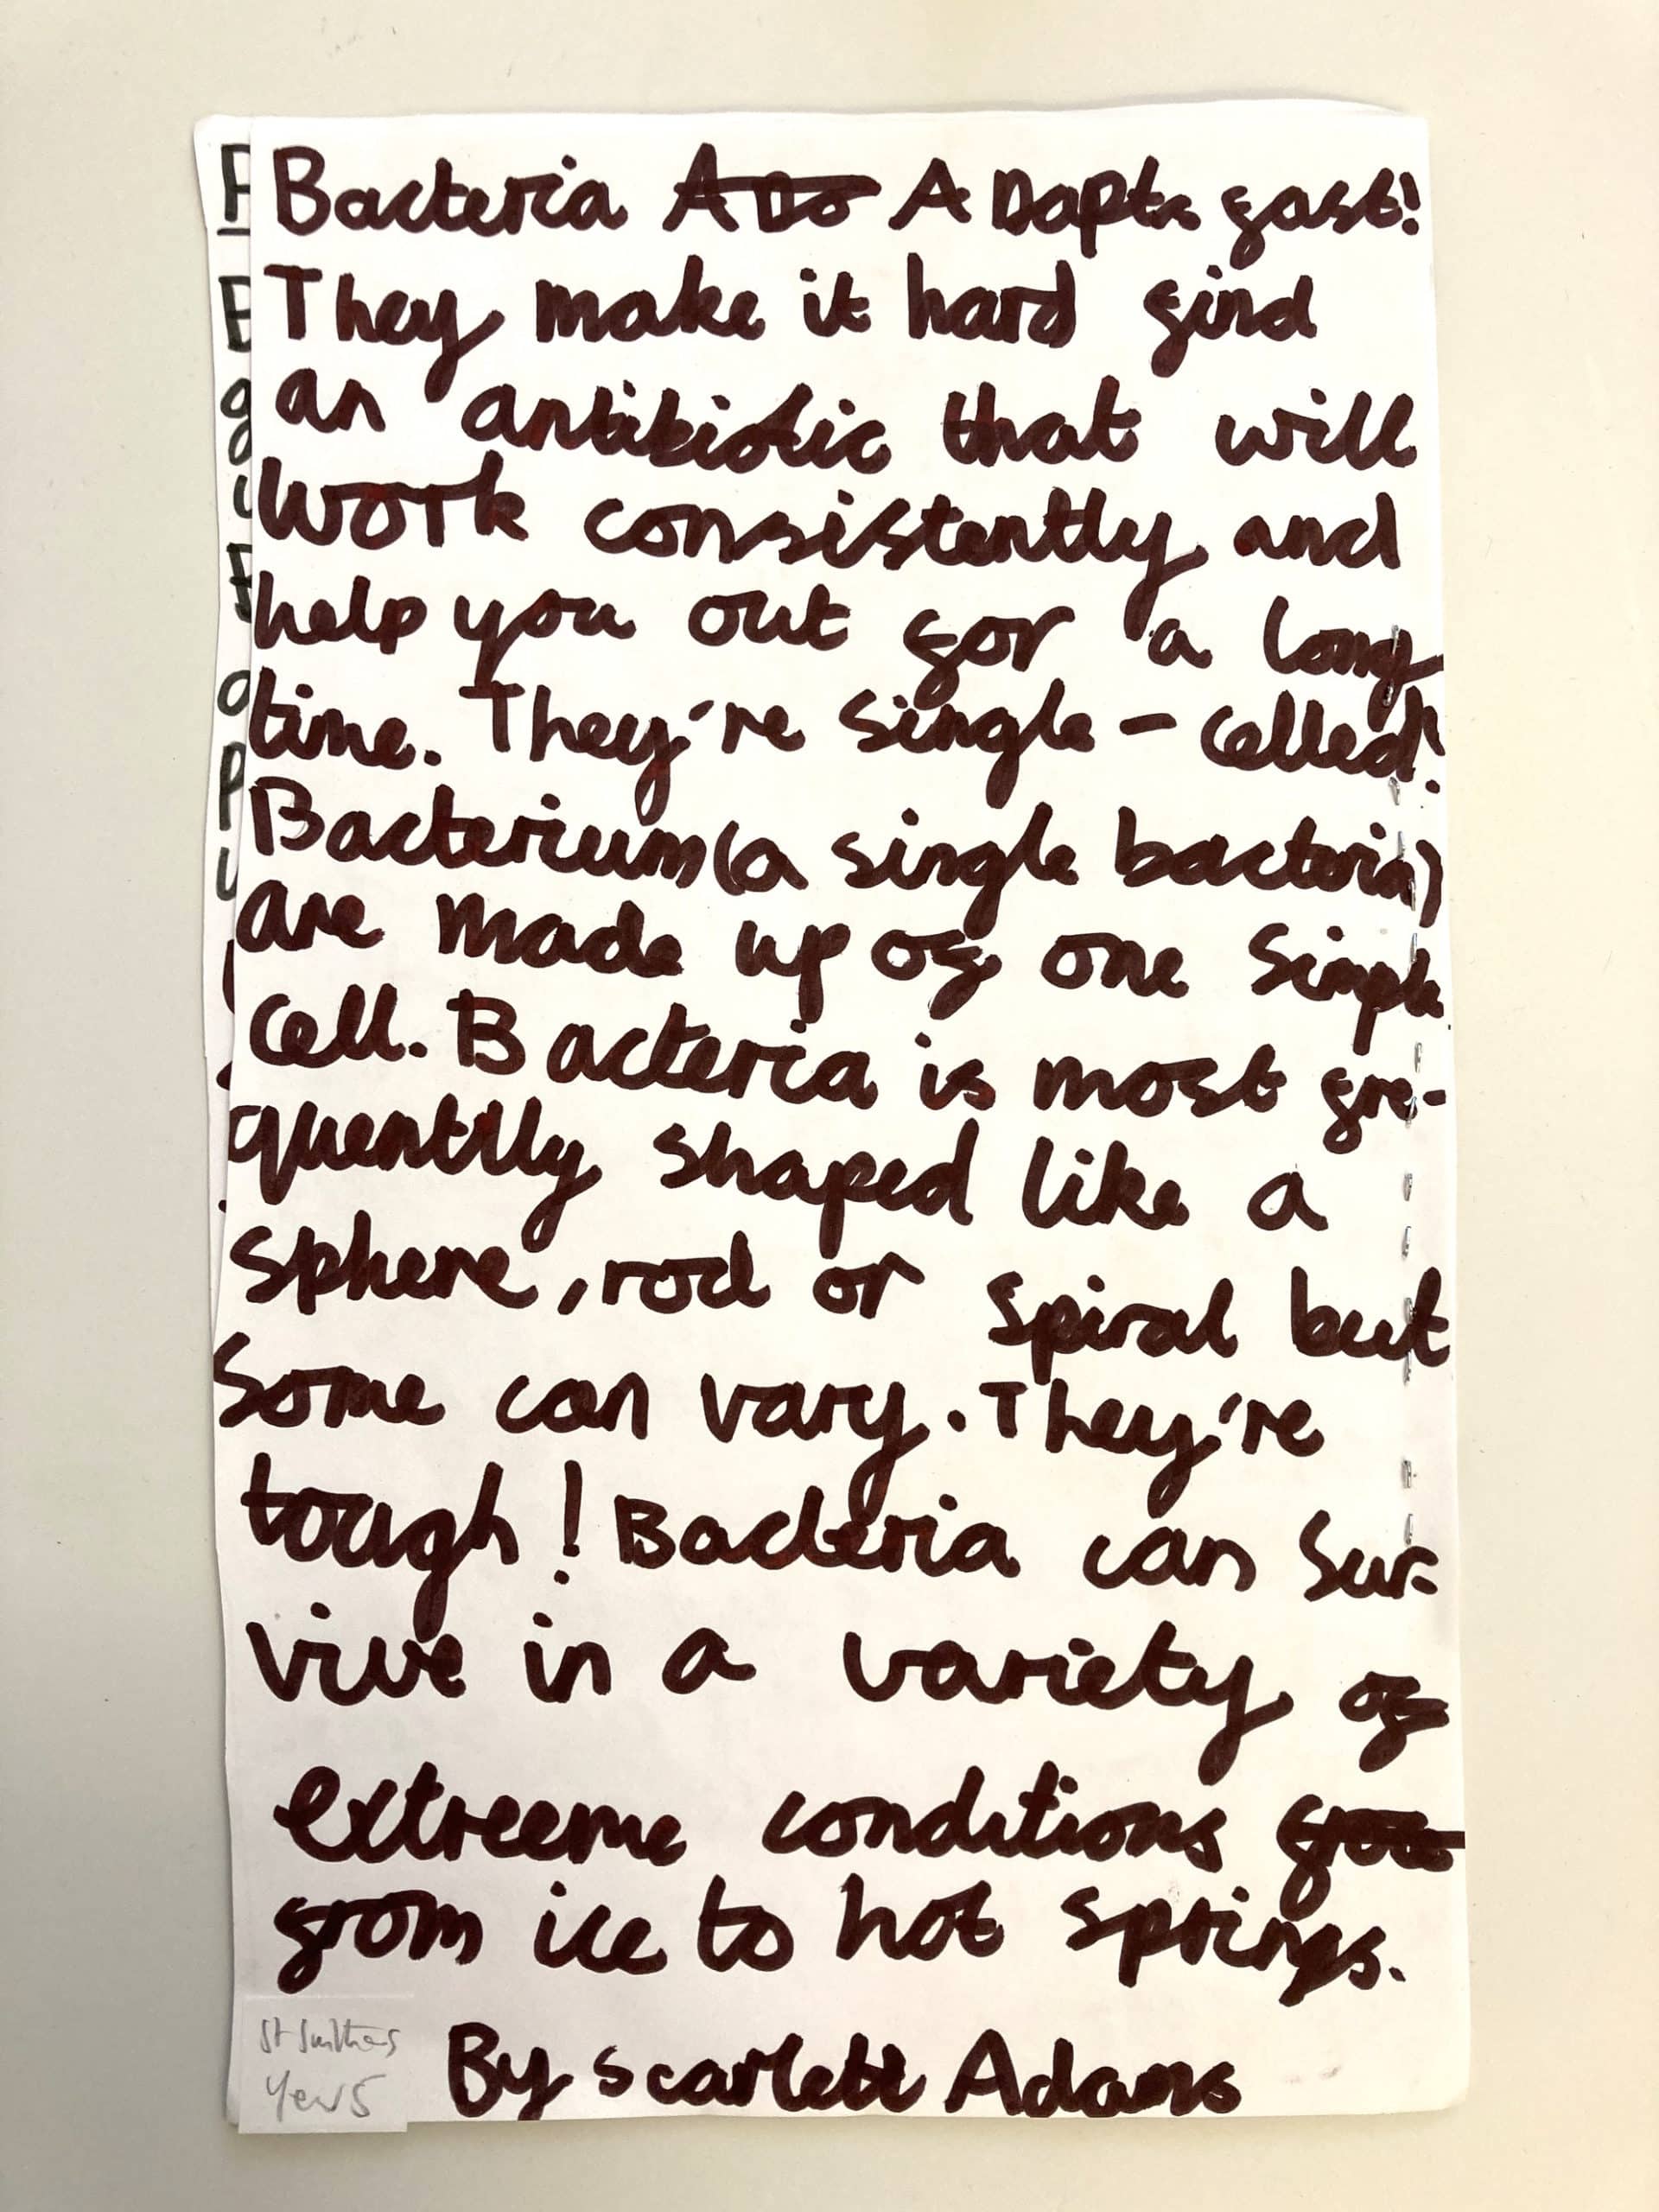 Bacteria ADo ADapts fast!
They make it hard find
an antibiotic that will
work consistently and
help you out for a long
time. They're single-celled!
Bacterium (a single bacteria)
are made up of one simple
cell. Bacteria is most fre-
quentlly shaped like a
sphere, rod or spiral but
some can vary. They're
tough! Bacteria can sur-
vive in a variety of
extreeme conditions
from ice to hot springs.
By scarlett Adams
Year 5